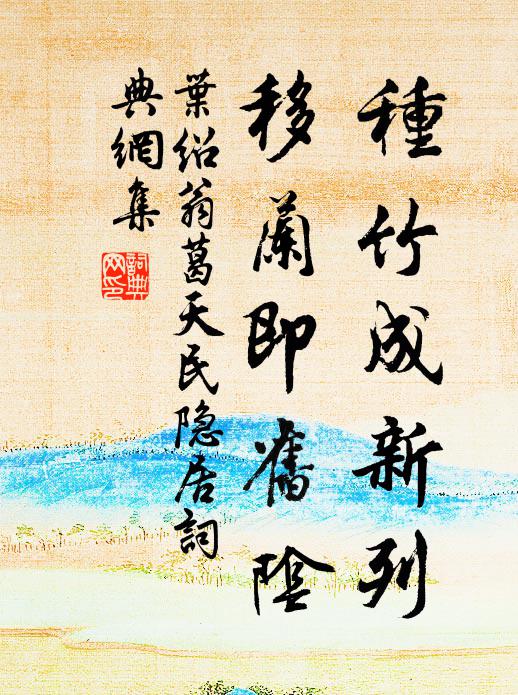 種竹成新列
移蘭即舊陰
葉绍翁葛天民隐居詞
典網集
詞典网印